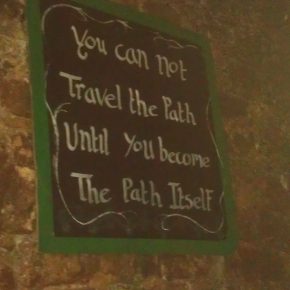 You can not
Travel the Path
Until you become
The Path Itself